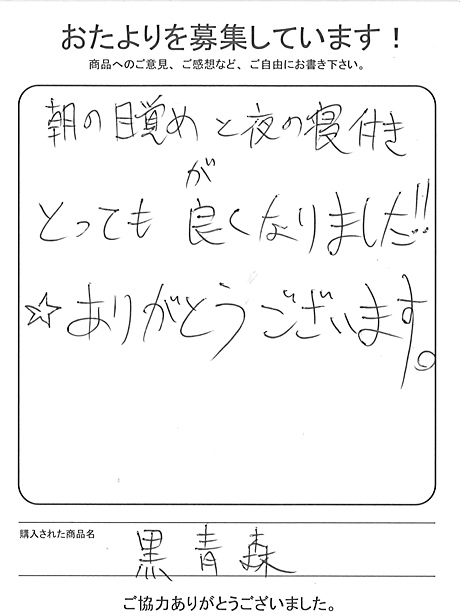 おたよりを募集しています！
商品へのご意見、ご感想など、ご自由にお書き下さい。
朝の目覚めと夜の寝付き
が
とっても良くなりました!!
☆ありがとうございます。
購入された商品名
黒青森
ご協力ありがとうございました。